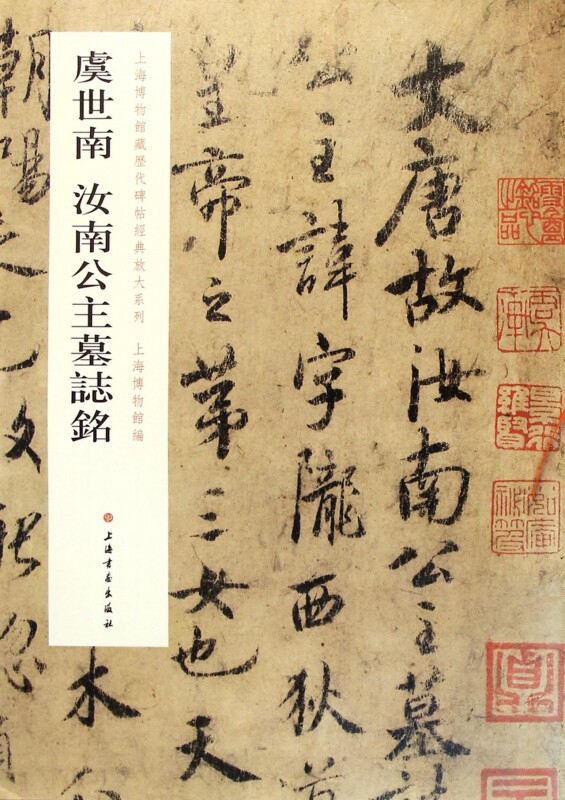 大唐故汝南公主墓誌
公主諱字隴西狄道
皇帝之苐三女也天
上海博物館藏歷代碑帖經典放大系列 上海博物館編
虞世南 汝南公主墓誌銘
上海書畫出版社
木
朝陽之